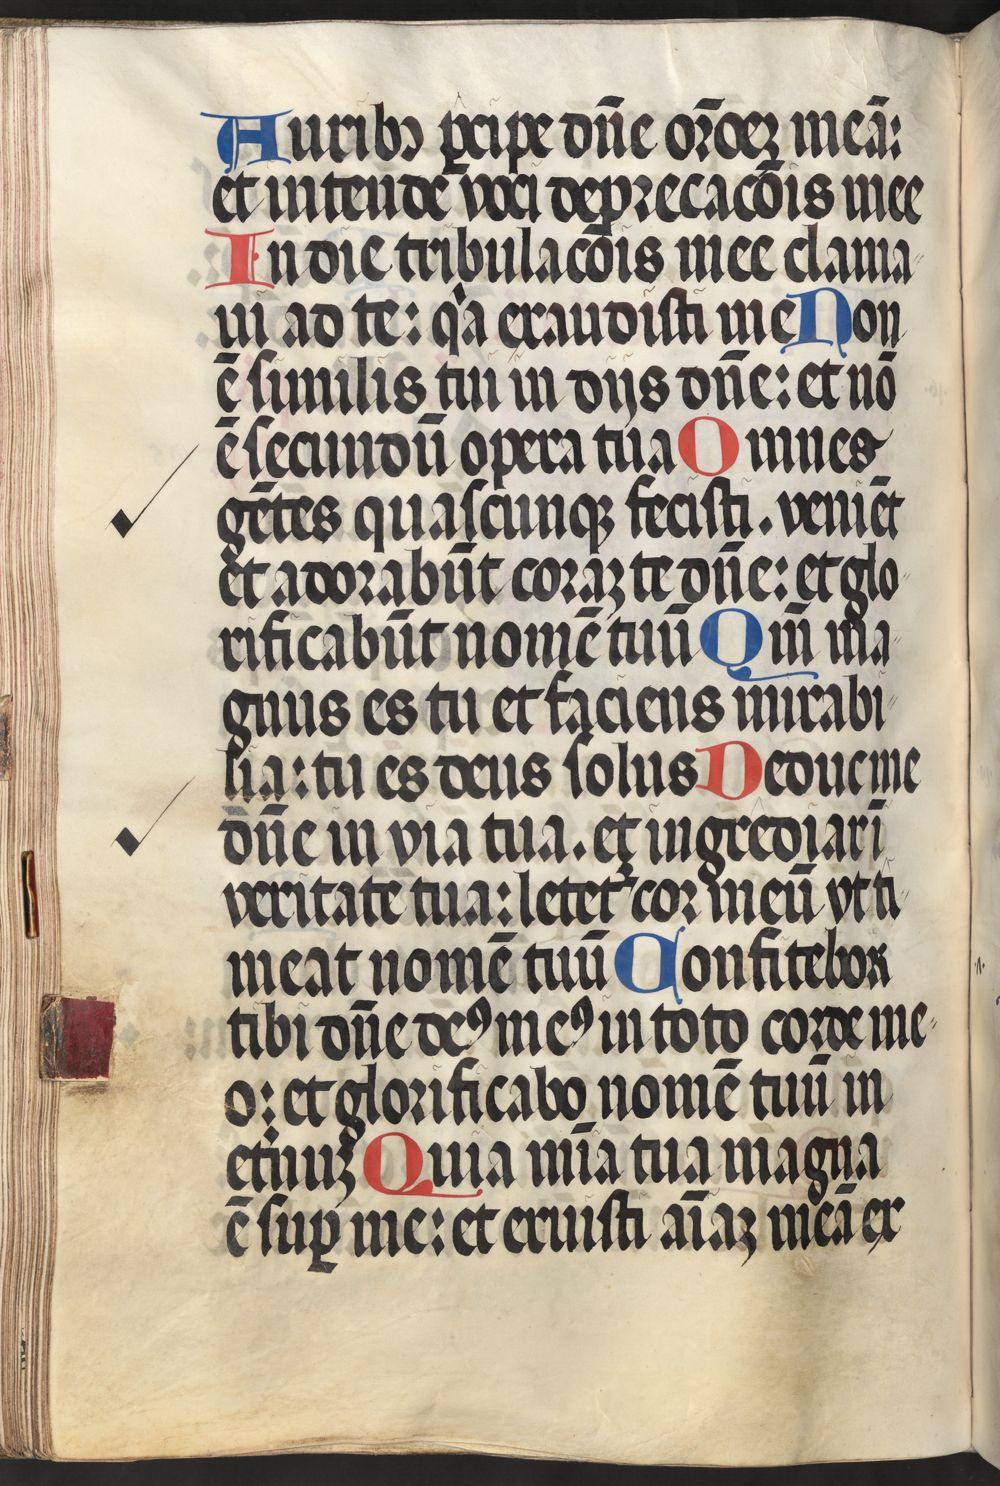 Aurib⁹ ꝑcipe dn̄e or̄oeꝫ meā:
et intende voci dep̄recacōis mee
In die tribulacōis mee clama〃
ui ad te: qͣ exaudisti me Non
ē similis tui in diis dn̄e: et nō
ē secundū opera tua Omnes
gētes quascunqꝫ fecisti. veniēt
et adorabūt coraꝫ te dn̄e: et glo〃
rificabūt nomē tuū Qm̄ ma〃
gnus es tu et faciens mirabi〃
lia: tu es deus solus Deduc me
dn̄e in via tua. et ingrediar ī
veritate tua: letet᷑ cor meū vt ti〃
meat nomē tuū Confitebor
tibi dn̄e de⁹ me⁹ in toto corde me〃
o: et glorificabo nomē tuū in
et̾nuꝫ Quia mīa tua magna
ē suꝑ me: et eruisti aīaꝫ meā ex